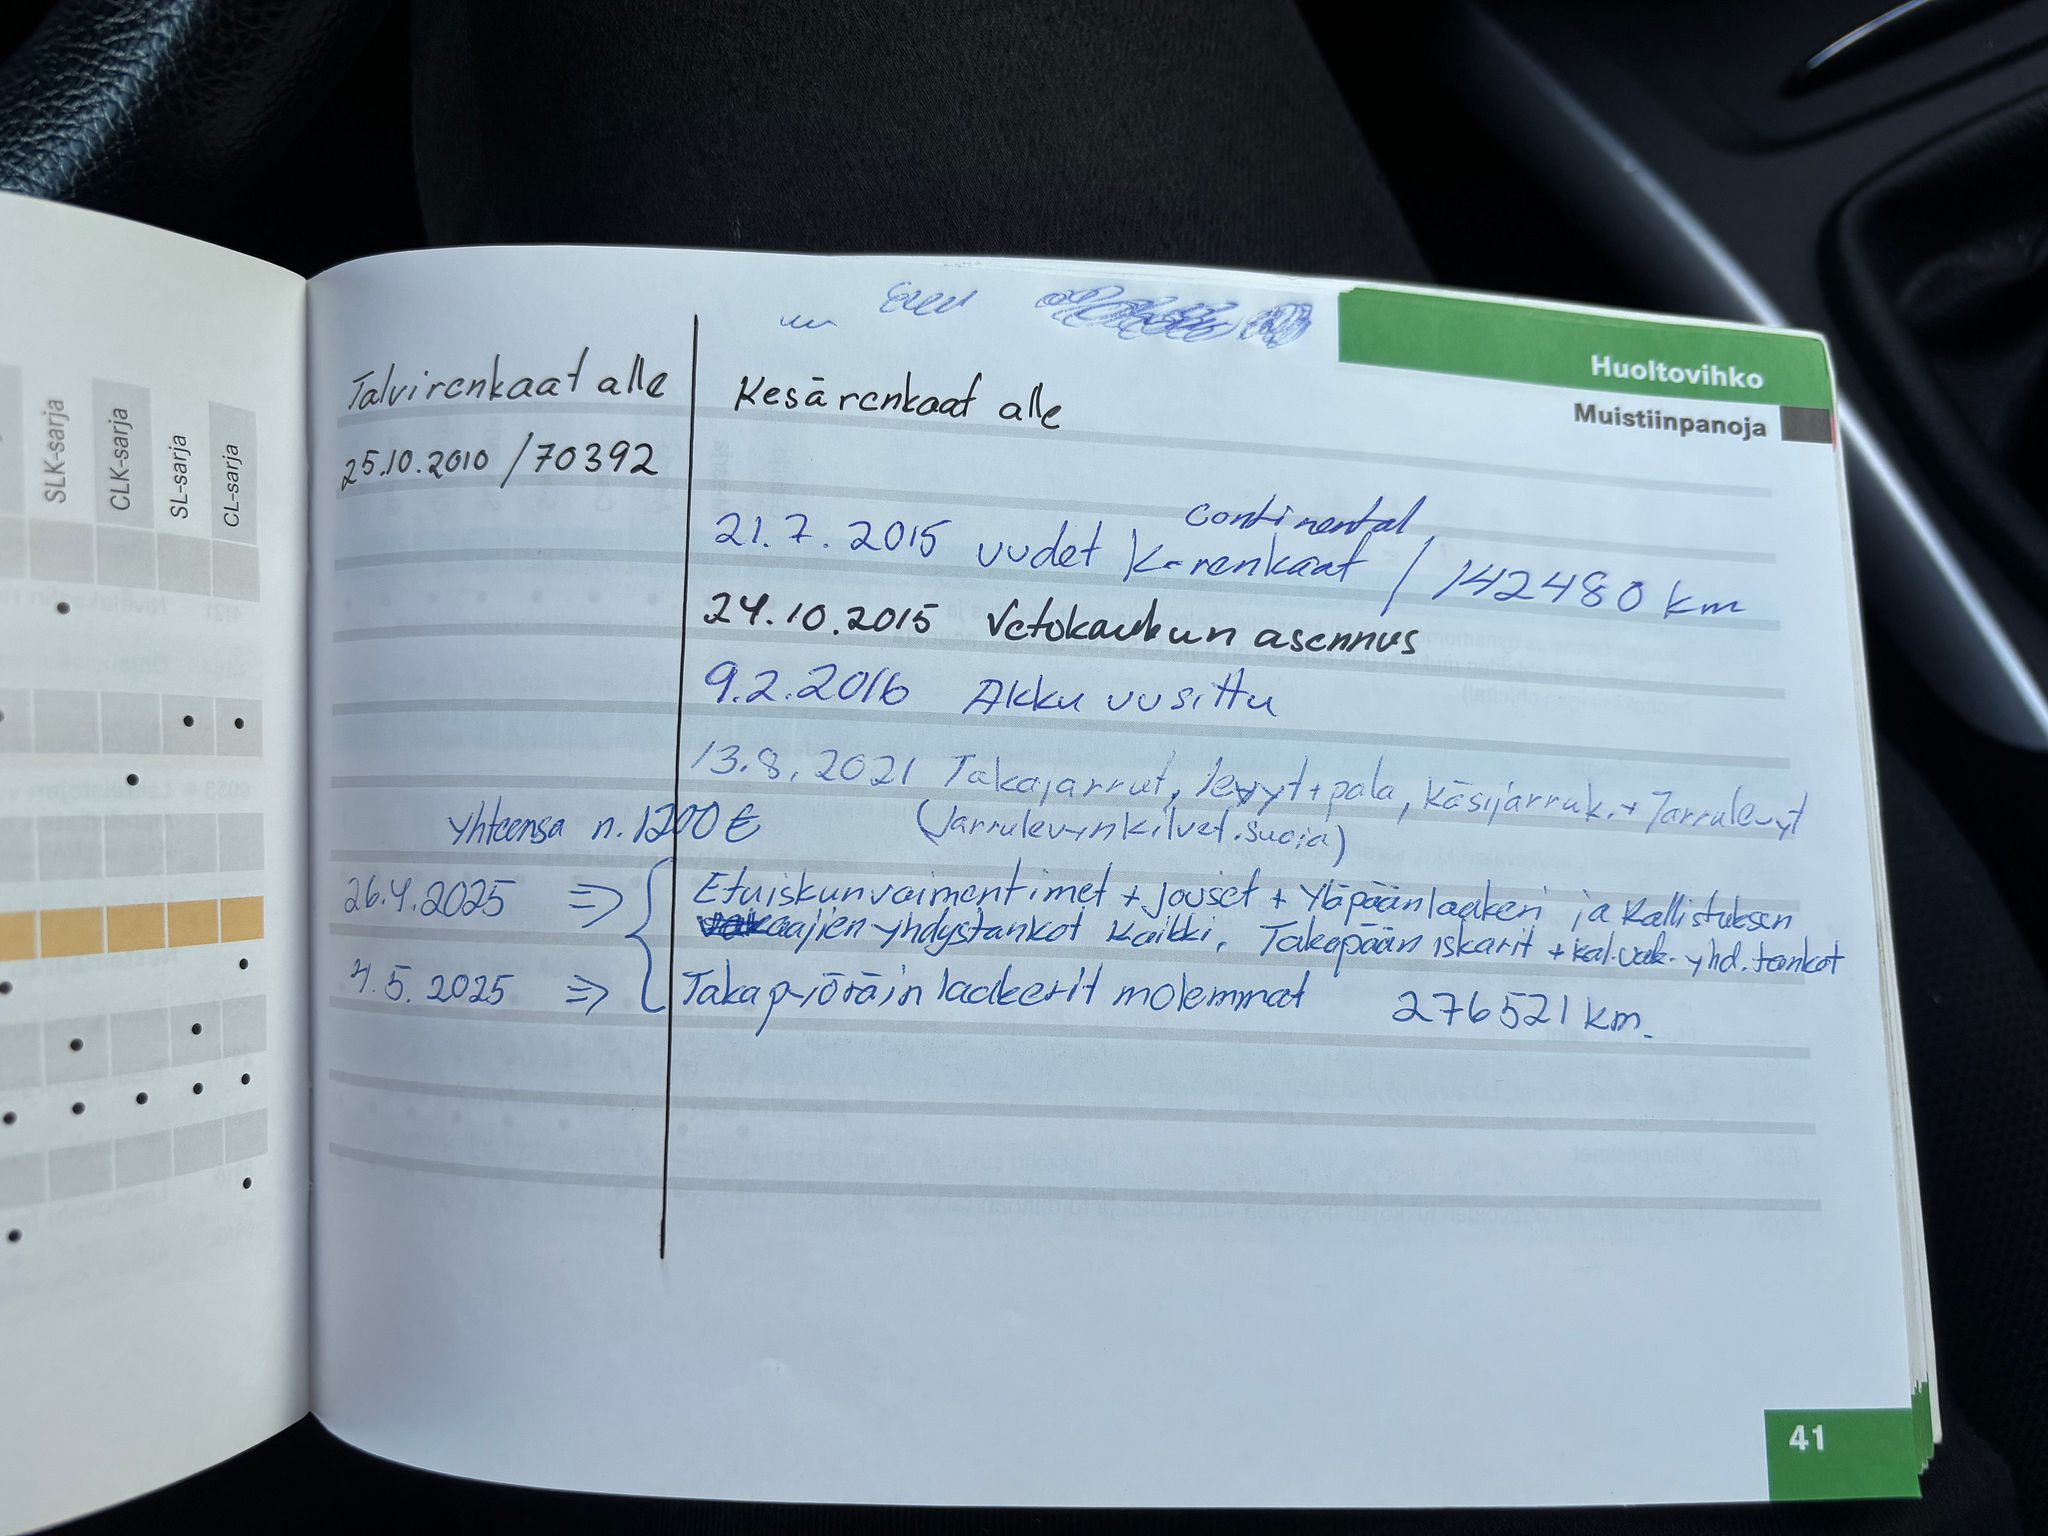 SLK-sarja
CLK-sarja
SL-sarja
CL-sarja
Huoltovihko
Muistiinpanoja
Talvirenkaat alle
Kesärenkaat alle
25.10.2010 / 70392
Continental
21.7.2015 uudet K-renkaat / 142480 km
24.10.2015 Vetokoukun asennus
9.2.2016 Akku uusittu
13.8.2021 Takajarrut, levyt + pala, Käsijarruk. + Jarrulevyt
yhteensä n. 1200 € (Jarrulevynkilvet.suoja)
26.4.2025 => Etuiskunvaimentimet + jouset + Yläpäänlaakeri ja Kallistuksen
aajien yhdystankot kaikki, Takapään iskarit + kal.vak. yhd. tankot
4.5.2025 => Takapyöräin laakerit molemmat 276521 km.
41